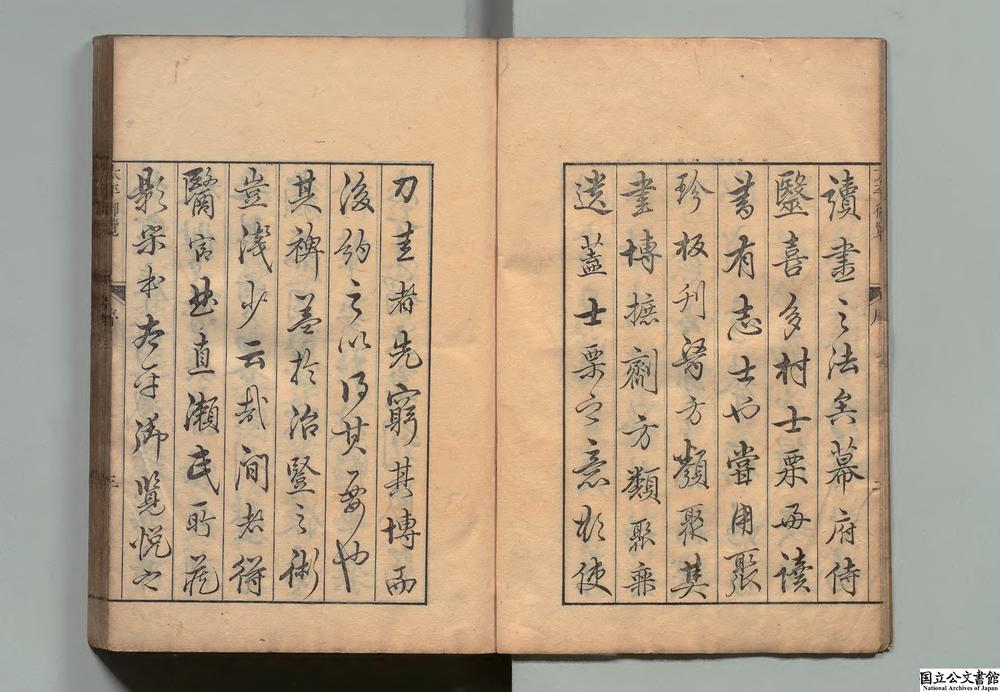 讀書之法矣幕府侍
醫喜多村士栗每讀
書有志士也嘗用聚
珍板刋醫方類聚其
書博摭劑方類聚無
遺蓋士栗之意欲使
刀圭者先窮其博而
後約之以得其要也
其裨益於治醫之術
豈淺少云哉間者得
醫官曲直瀨氏所藏
影宋本太平御覽悅之
太平御覽
序
二
太平御覽
序
三
国立公文書館
National Archives of Japan